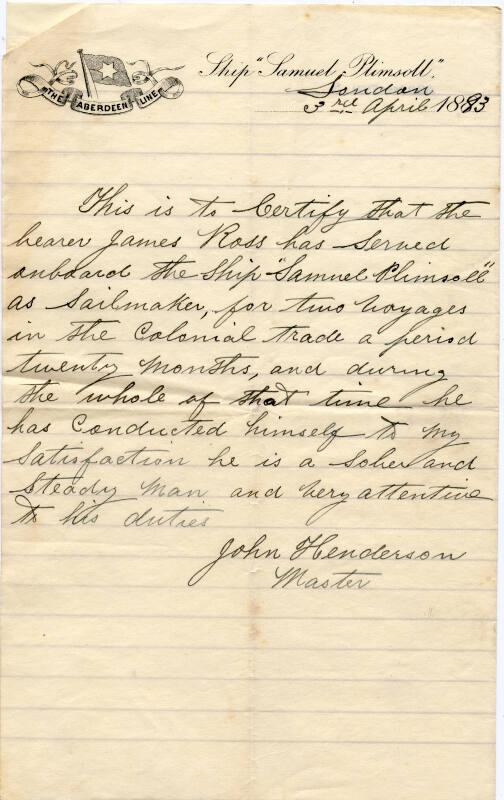 THE ABERDEEN LINE
Ship "Samuel Plimsoll".
London
3rd April 1883
This is to Certify that the
bearer James Ross has Served
onboard the Ship "Samuel Plimsoll"
as Sailmaker, for two Voyages
in the Colonial trade a period
twenty Months, and during
the whole of that time he
has Conducted himself to my
Satisfaction he is a Sober and
Steady Man and Very attentive
to his duties
John Henderson
Master